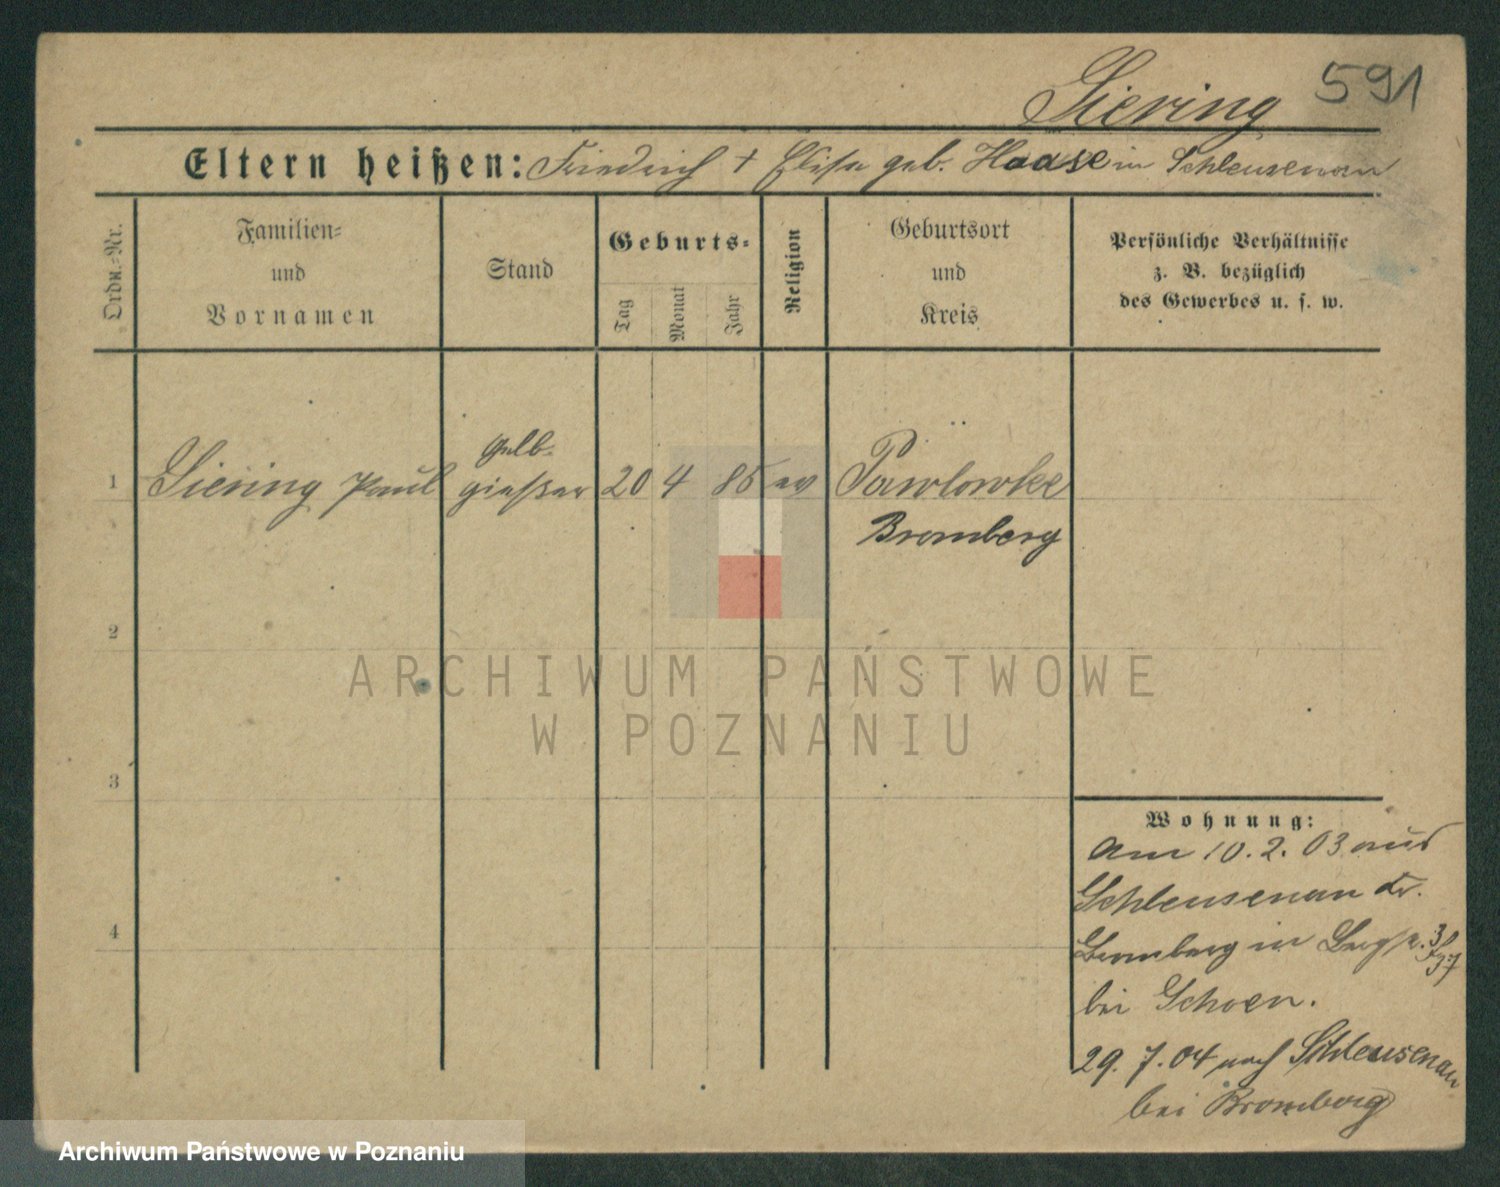 Siering 591
Eltern heißen: Friedrich † Elise geb. Haase in Schleusenau
Ordn.-Nr.
Familien-
und
Vornamen
Stand
Geburts-
Tag
Monat
Jahr
Religion
Geburtsort
und
Kreis
Persönliche Verhältnisse
z. B. bezüglich
des Gewerbes u. s. w.
1 Siering Paul Gelb-
gießer 20 4 85 ev Pawlowke
Bromberg
2
3
4
Wohnung:
Am 10.2.03 aus
Schleusenau Kr.
Bromberg in
bei Schoen.
29.7.04 nach Schleusenau
bei Bromberg
ARCHIWUM PAŃSTWOWE
W POZNANIU
Archiwum Państwowe w Poznaniu